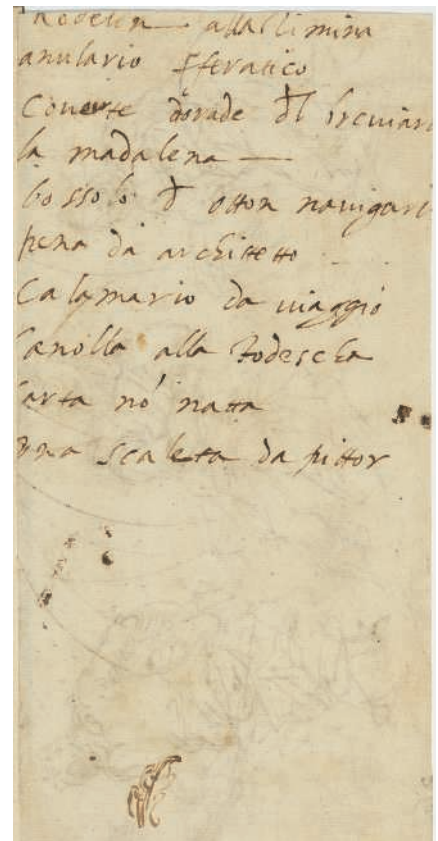 alla
anulario sferatico
Coverte dorade dl breviari
la madalena —
bossolo d otton navigari
pena da architetto
Calamario da viaggio
alla Todescha
carta nó natta
una scaleta da pittor